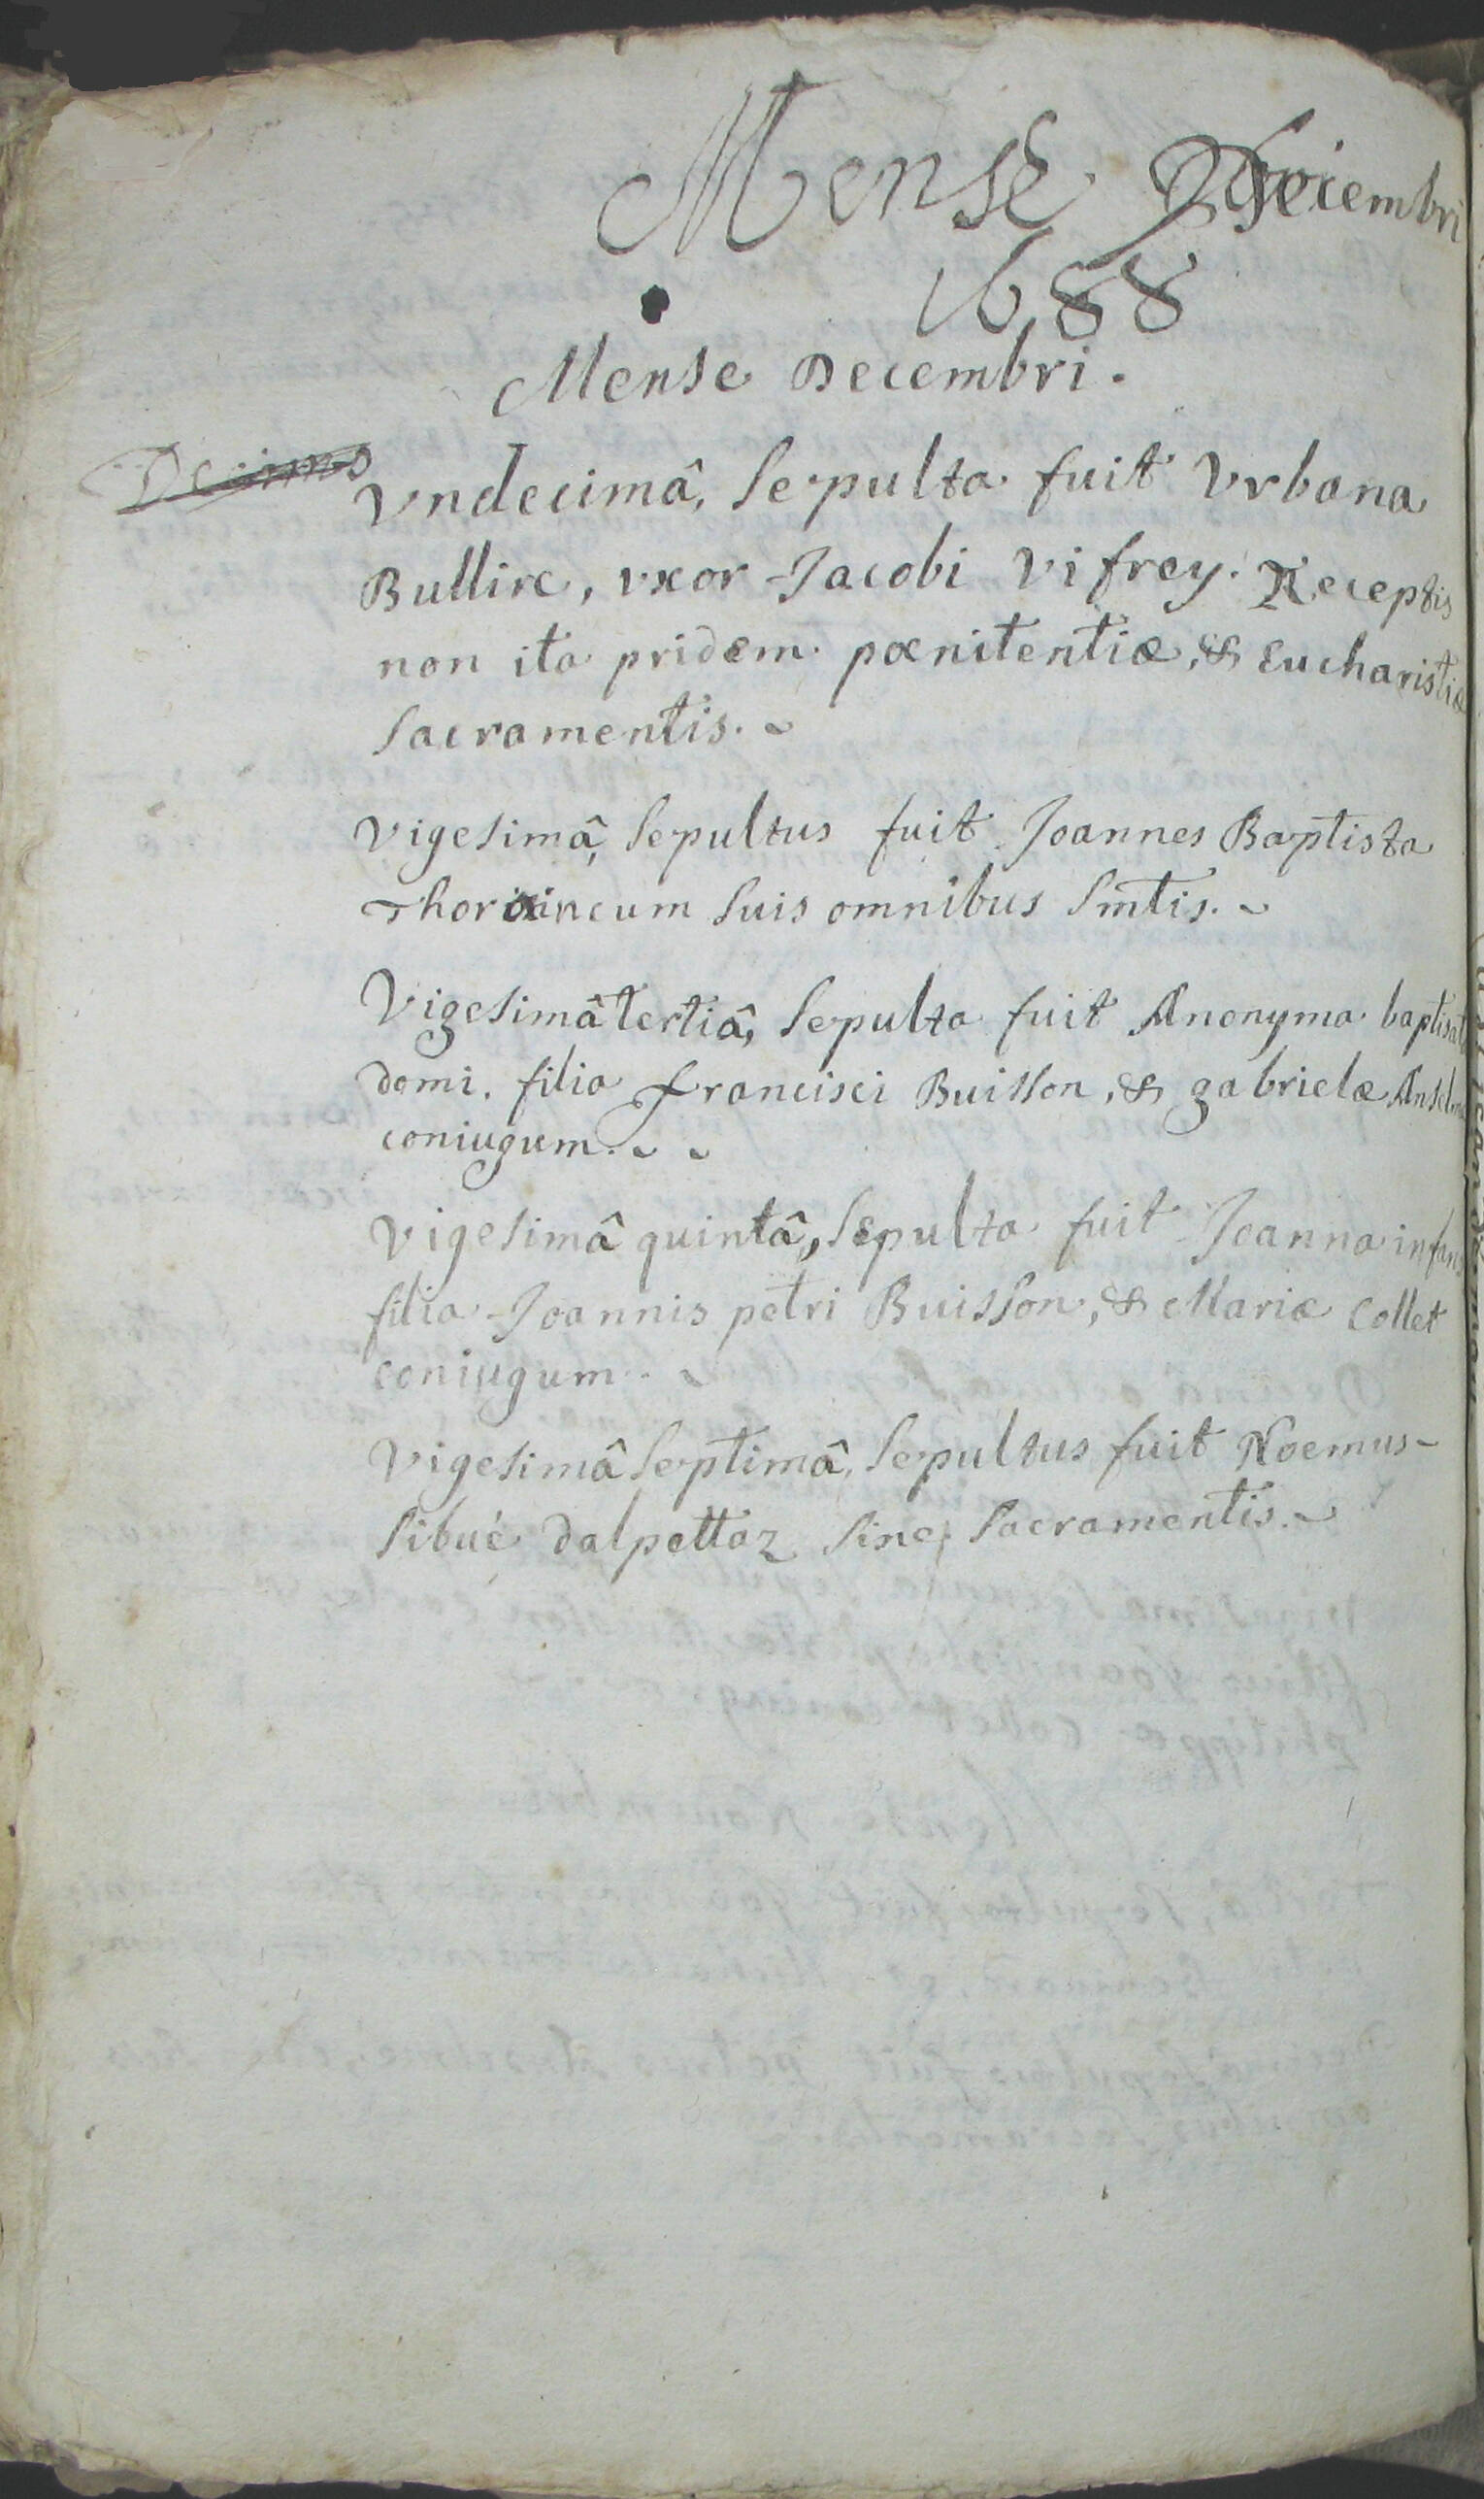 Mense Decembri
1688
Mense Decembri.
Decimo
Vndecimâ, Sepulta fuit Vrbana
Bullire, vxor Jacobi Vifrey. Receptis
non ita pridem pœnitentiæ, & Eucharistiæ
Sacramentis.
Vigesimâ, Sepultus fuit Joannes Baptista
cum Suis omnibus Smtis.
Vigesimâ tertiâ, Sepulta fuit Anonyma baptisat
domi, filia Francisci Buisson, & gabrielæ Anselm
coniugum.
Vigesimâ quintâ, Sepulta fuit Joanna infans
filia Joannis petri Buisson, & Mariæ Collet
coniugum.
Vigesimâ Septimâ, Sepultus fuit Noemus
Sibué dalpettaz Sine Sacramentis.